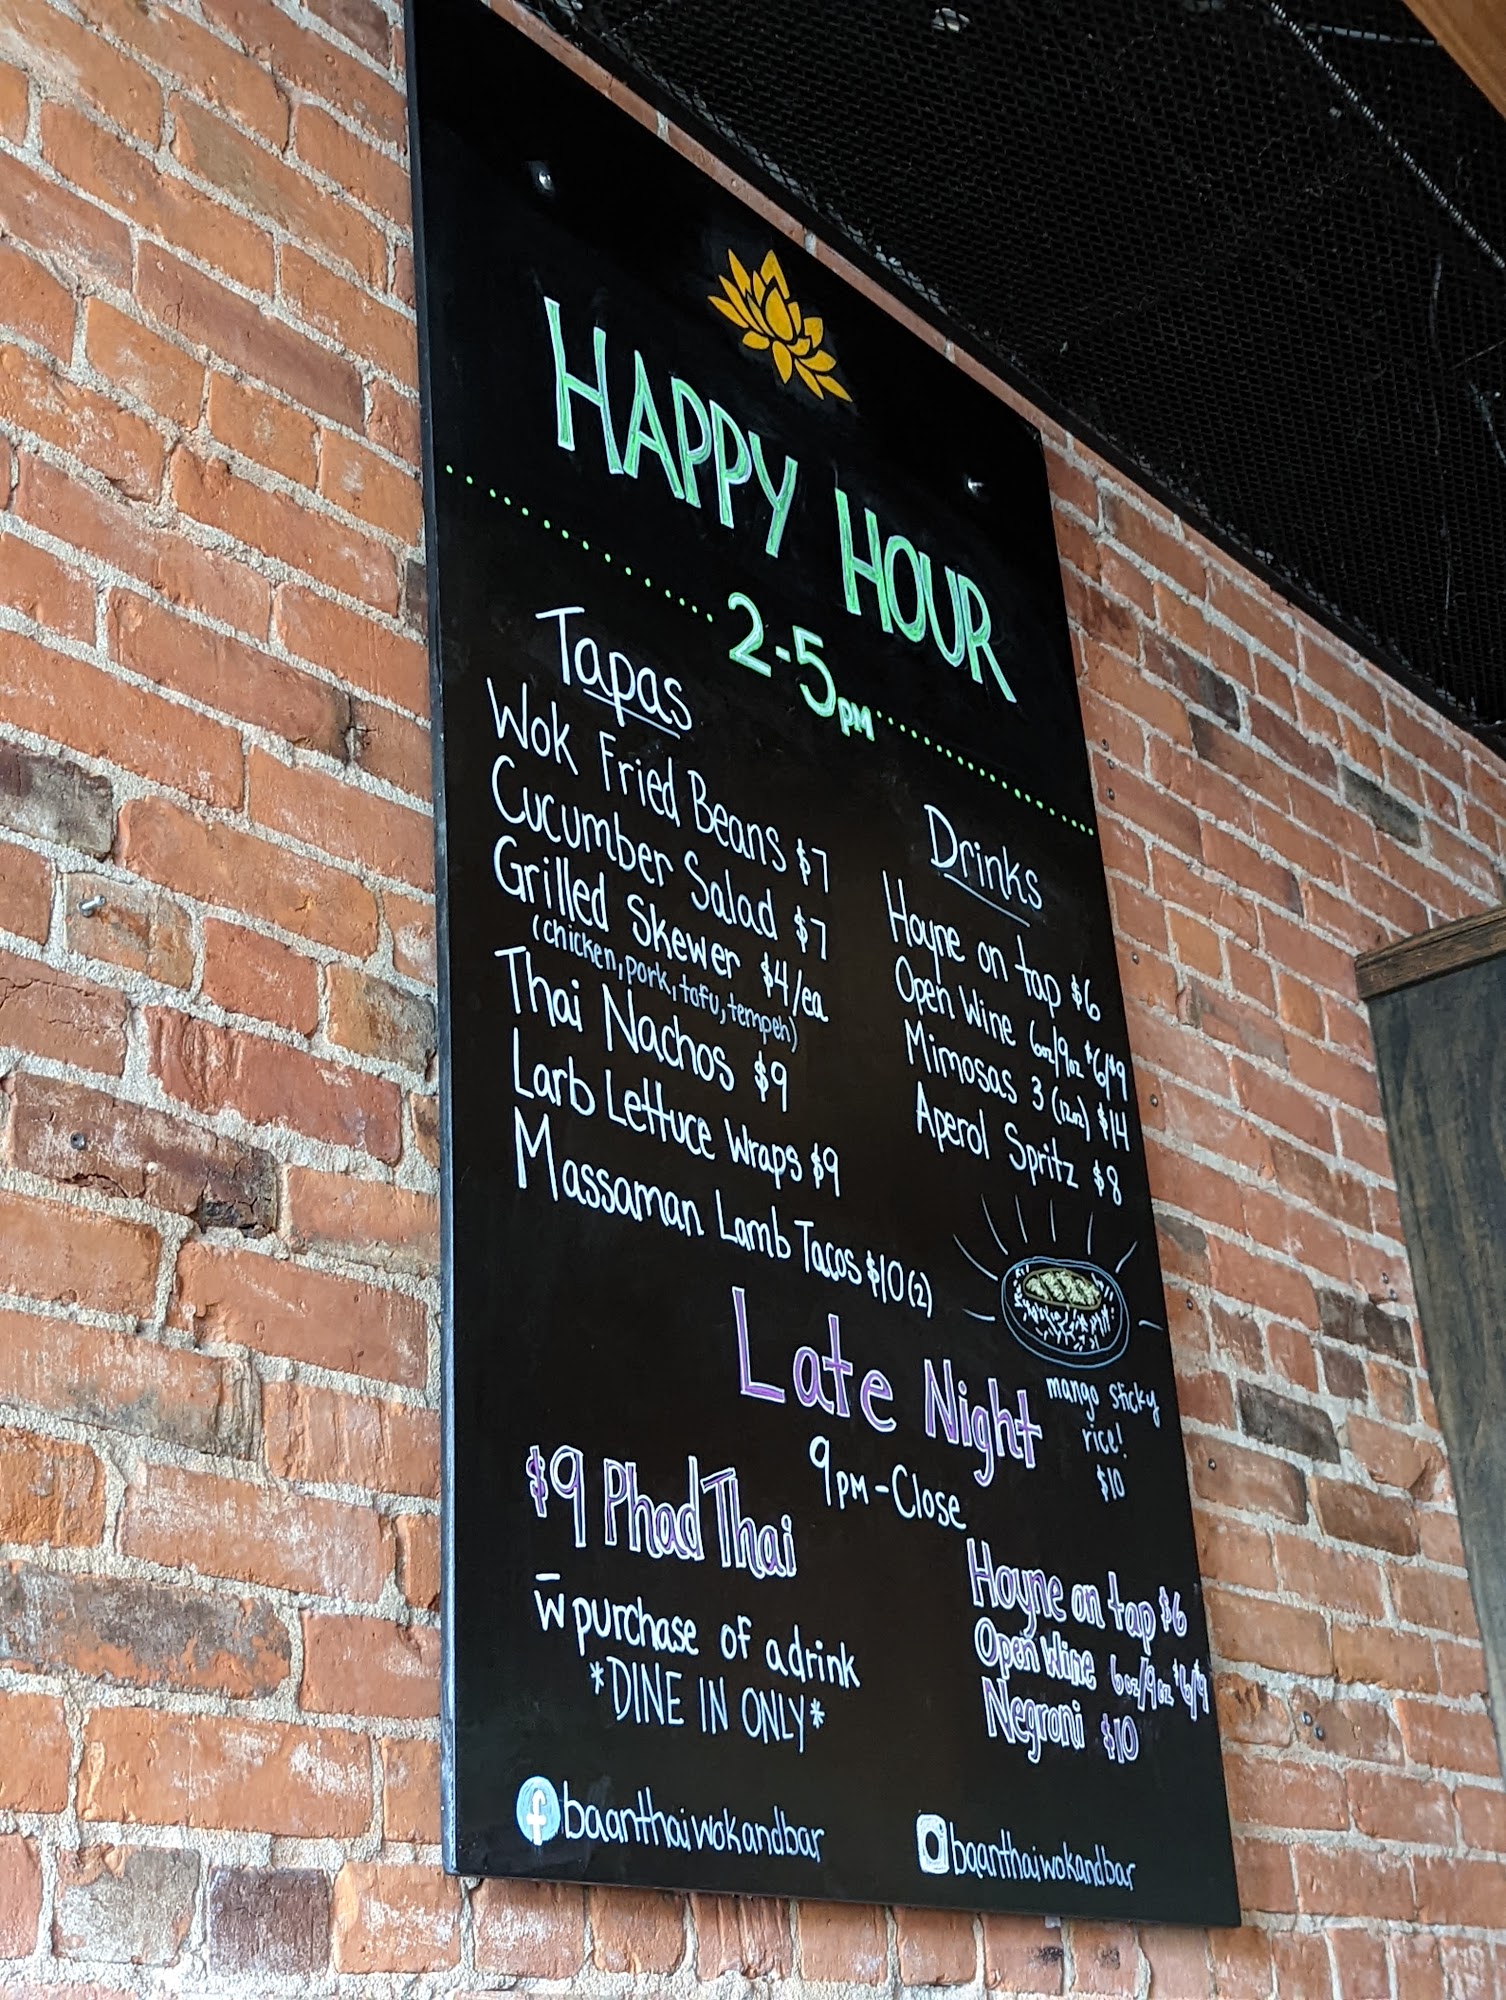 HAPPY HOUR
2-5PM
Tapas
Wok Fried Beans $7
Cucumber Salad $7
Grilled Skewer $4/ea
(chicken, pork, tofu, tempeh)
Thai Nachos $9
Larb Lettuce Wraps $9
Massaman Lamb Tacos $10 (2)
Drinks
Hoyne on tap $6
Open Wine 6oz/9oz $6/$9
Mimosas 3 (12oz) $14
Aperol Spritz $8
mango sticky
rice!
$10
Late Night
9PM-Close
$9 Phad Thai
w̄ purchase of a drink
*DINE IN ONLY*
Hoyne on tap $6
Open Wine 6oz/9oz $6/9
Negroni $10
baanthaiwokandbar
baanthaiwokandbar